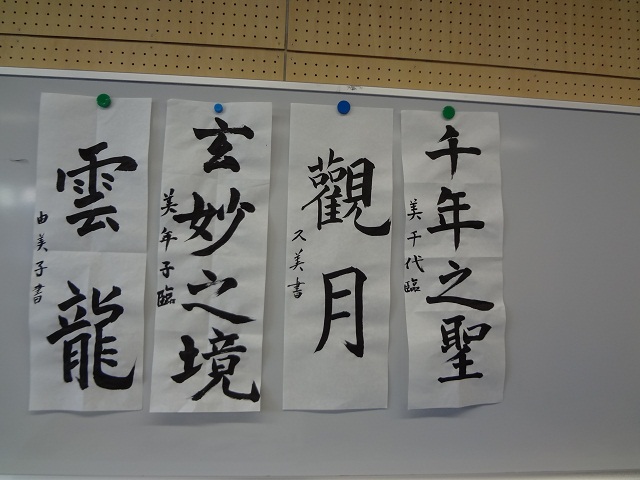 千年之聖
美千代臨
觀月
久美書
玄妙之境
美年子臨
雲龍
由美子書